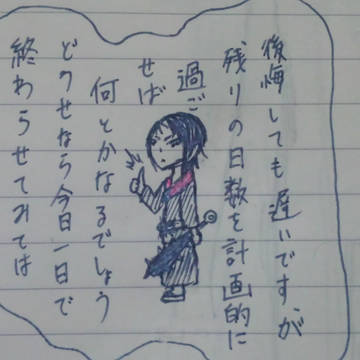 後悔しても遅いですが、
残りの日数を計画的に
過ご
せば
何とかなるでしょう
どうせなら今日一日で
終わらせてみては